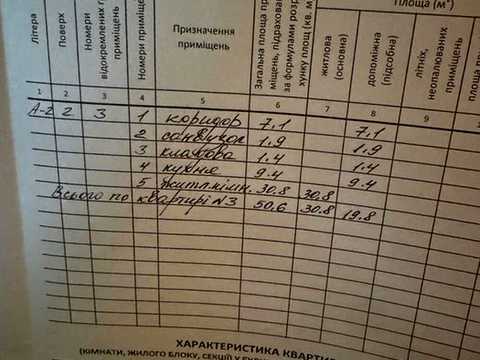 Літера
Поверх
Номери
відокремлених
приміщень
Номери приміщень
Призначення
приміщень
Загальна площа
міщень, підрахована
за формулами розра-
хунку площ (кв. м
Площа (м²)
житлова
(основна)
допоміжна
(підсобна)
літніх,
неопалюваних
приміщень
площа
1 2 3 4 5 6 7 8 9
А-2 2 3 1 коридор 7.1 7.1
2 санвузол 1.9 1.9
3 кладова 1.4 1.4
4 кухня 9.4 9.4
5 житл.кімн. 30.8 30.8
Всього по квартирі №3 50.6 30.8 19.8
ХАРАКТЕРИСТИКА
(КІМНАТИ, ЖИЛОГО БЛОКУ, СЕКЦІЇ) У